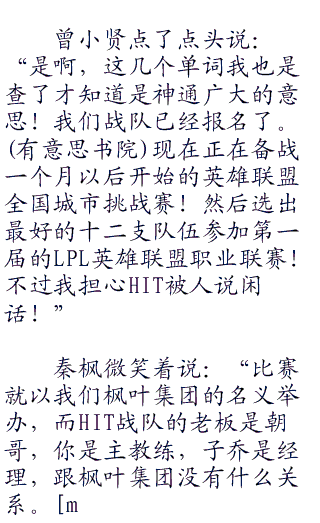 曾小贤点了点头说：
“是啊，这几个单词我也是
查了才知道是神通广大的意
思！我们战队已经报名了。
(有意思书院)现在正在备战
一个月以后开始的英雄联盟
全国城市挑战赛！然后选出
最好的十二支队伍参加第一
届的LPL英雄联盟职业联赛！
不过我担心HIT被人说闲
话！”
秦枫微笑着说：“比赛
就以我们枫叶集团的名义举
办，而HIT战队的老板是朝
哥，你是主教练，子乔是经
理，跟枫叶集团没有什么关
系。[m